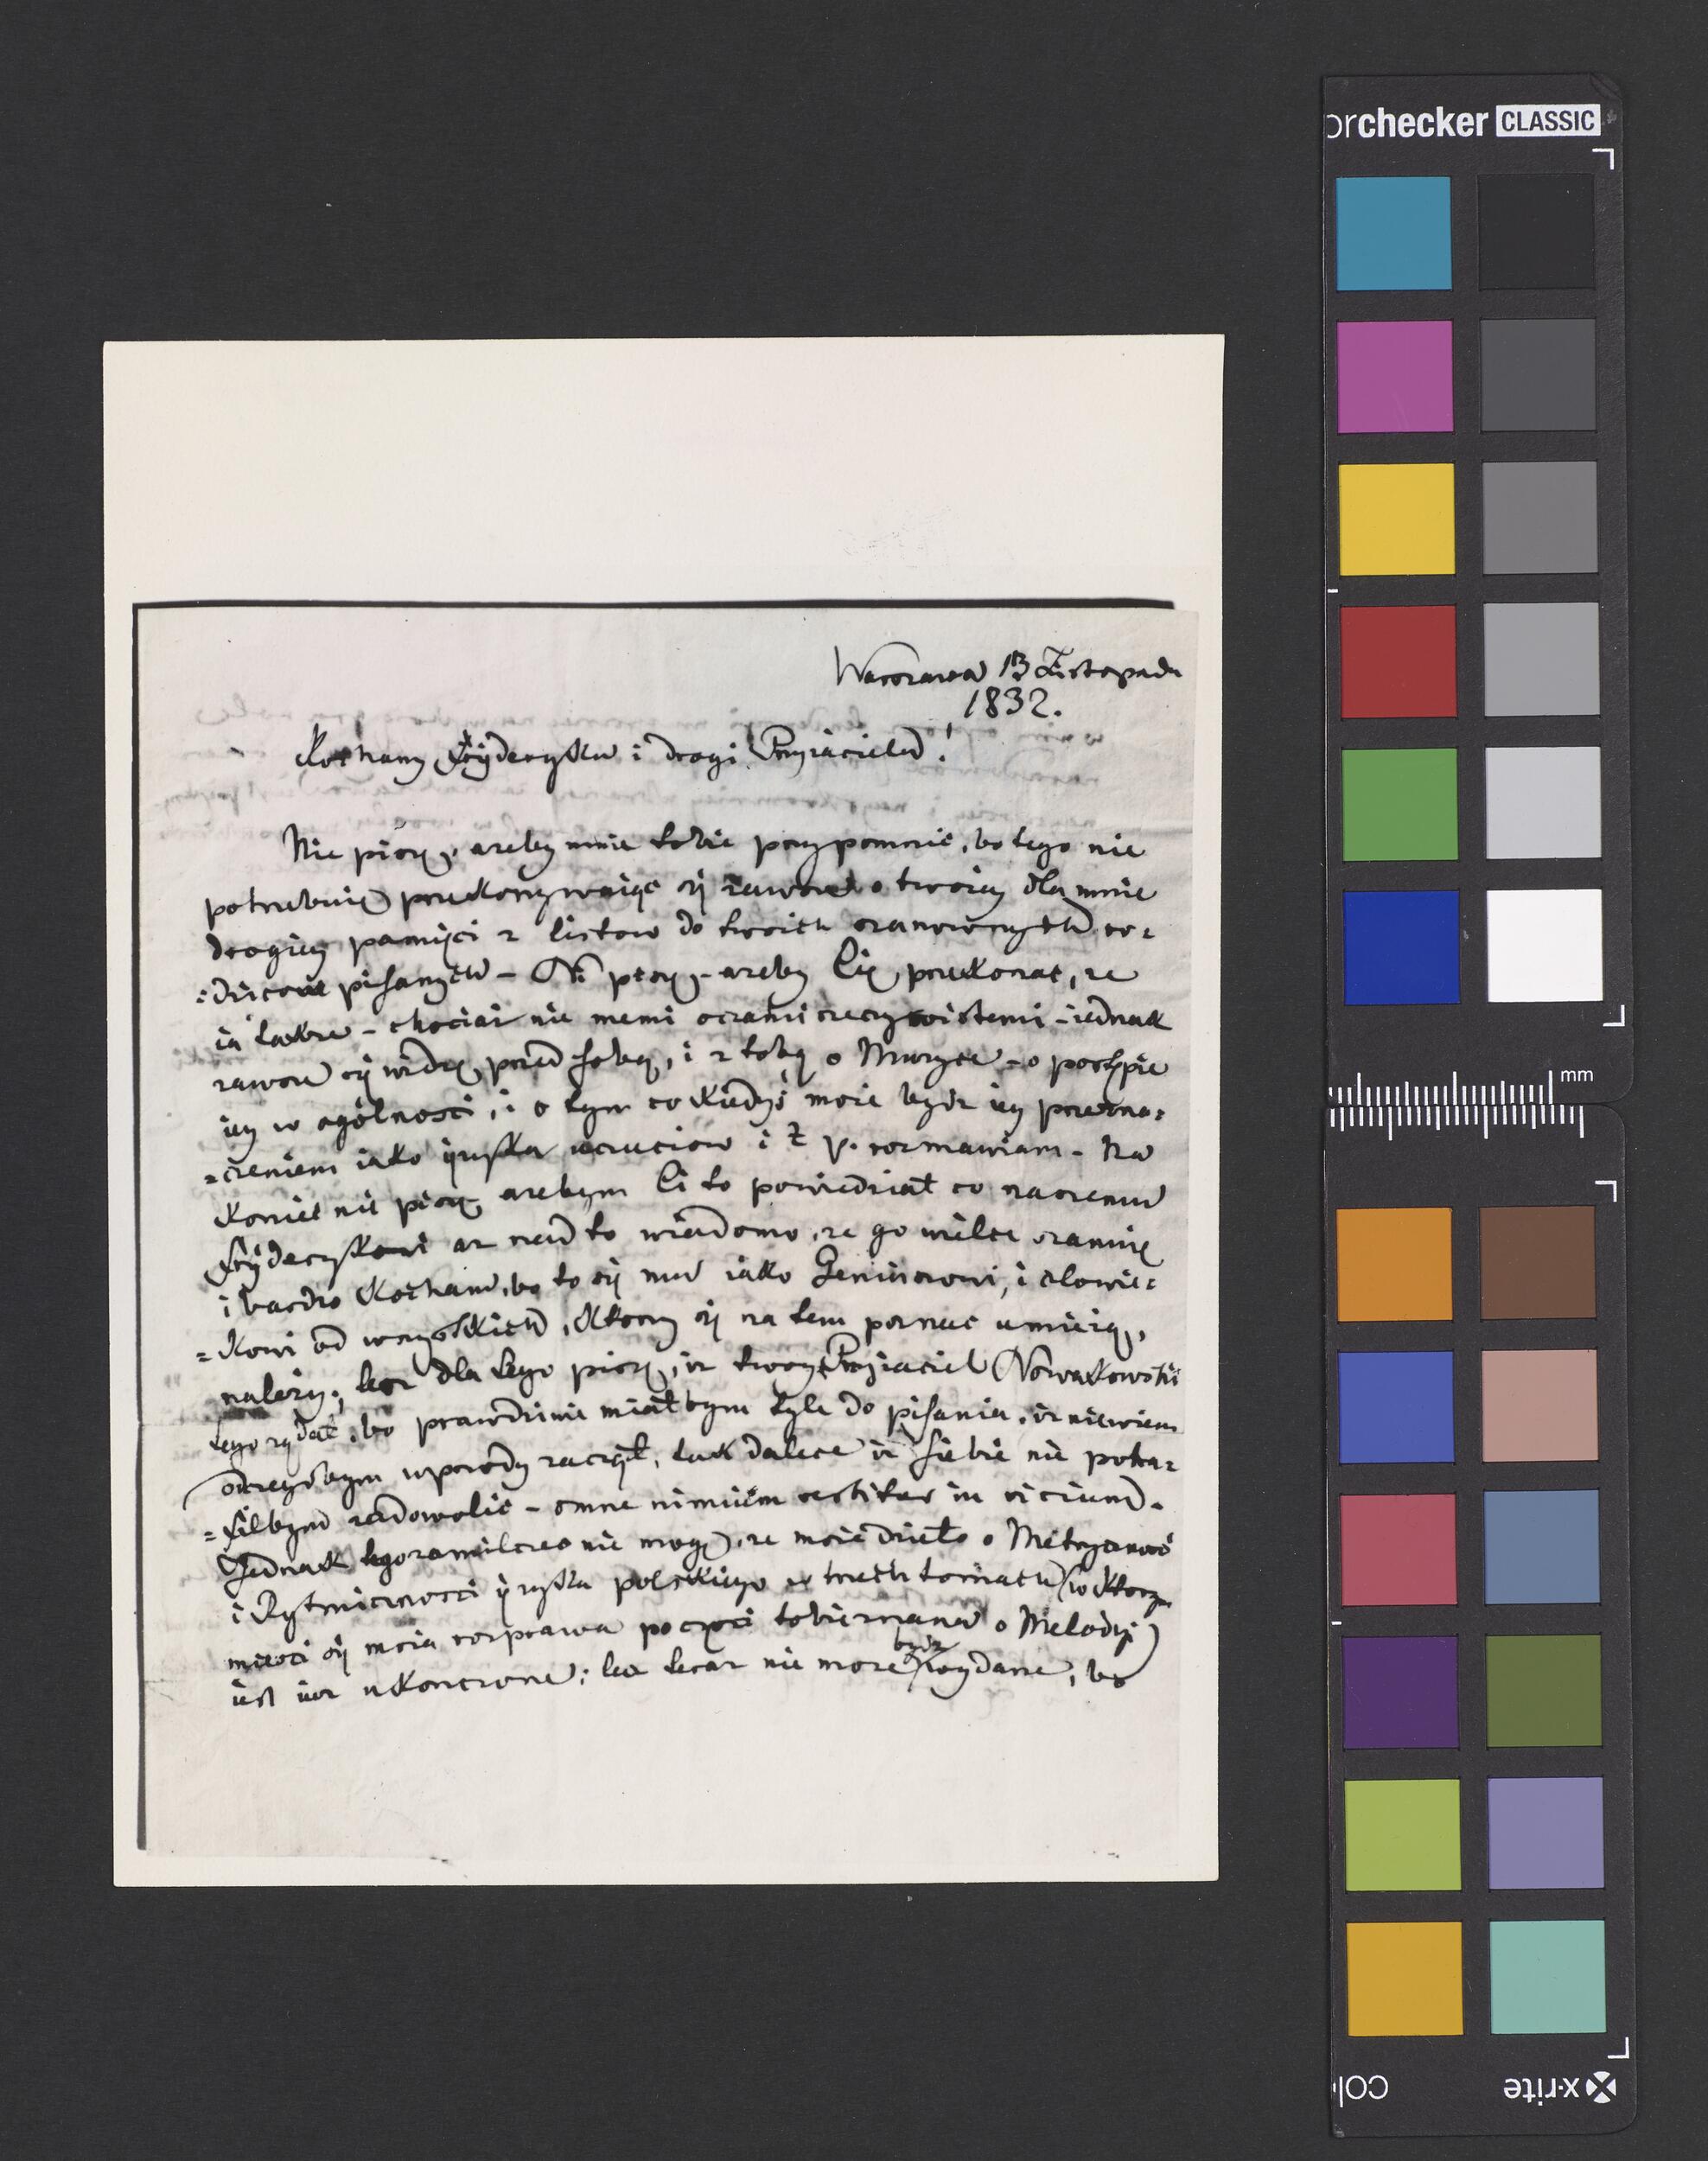 orchecker CLASSIC
Warszawa 13 Listopada
1832.
Kochany Fryderysku i drogi Przyiacielu!
Nie piszę, azeby mnie tobie przypomnić, bo tego nie
potrzebuię przekonywaiąc się zawsze o twoiey dla mnie
drogiey pamięci z listow do twoich szanownych ro=
=dzicow pisanych – Ni piszę – azeby Cię przekonać, ze
ia takze – chociaż nie memi oczami rzeczywistemi – iednak
zawsze cię widzę przed sobą, i z tobą o Muzyce – o postępie
iey w ogólności, i o tym co kiedyś może bydz iey przezna=
=czeniem iako ięzyka uczuciow i t. p. rozmawiam – Na
koniec nie piszę azebym Ci to powiedział co naszemu
Fryderyskowi az nad to wiadomo, ze go wielce szanuię
i bardzo kocham, bo to się mu iako Geniuszowi, i człowie=
=kowi od wszystkich, ktorzy się na tem poznać umieią,
należy; lecz dla tego piszę, iz twoy Przyiaciel Nowakowski
tego rządał, bo prawdziwie miałbym tyle do pisania, iz niewiem
odczegobym wprzody zaczął, tak dalece iz siebie nie potra=
=filbym zadowolić – omne nimium vertitur in vicium.
Jednak tego zamilczeć nie mogę, ze moie dzieło o Metryczności
i Rytmiczności ięzyka polskiego w trzech tomach (w ktorz
mieści się moia rozprawa po części tobie znana o Melodyi)
iest iuz ukonczone; lecz teraz nie moze bydz wydane, bo
mm
x-rite
col